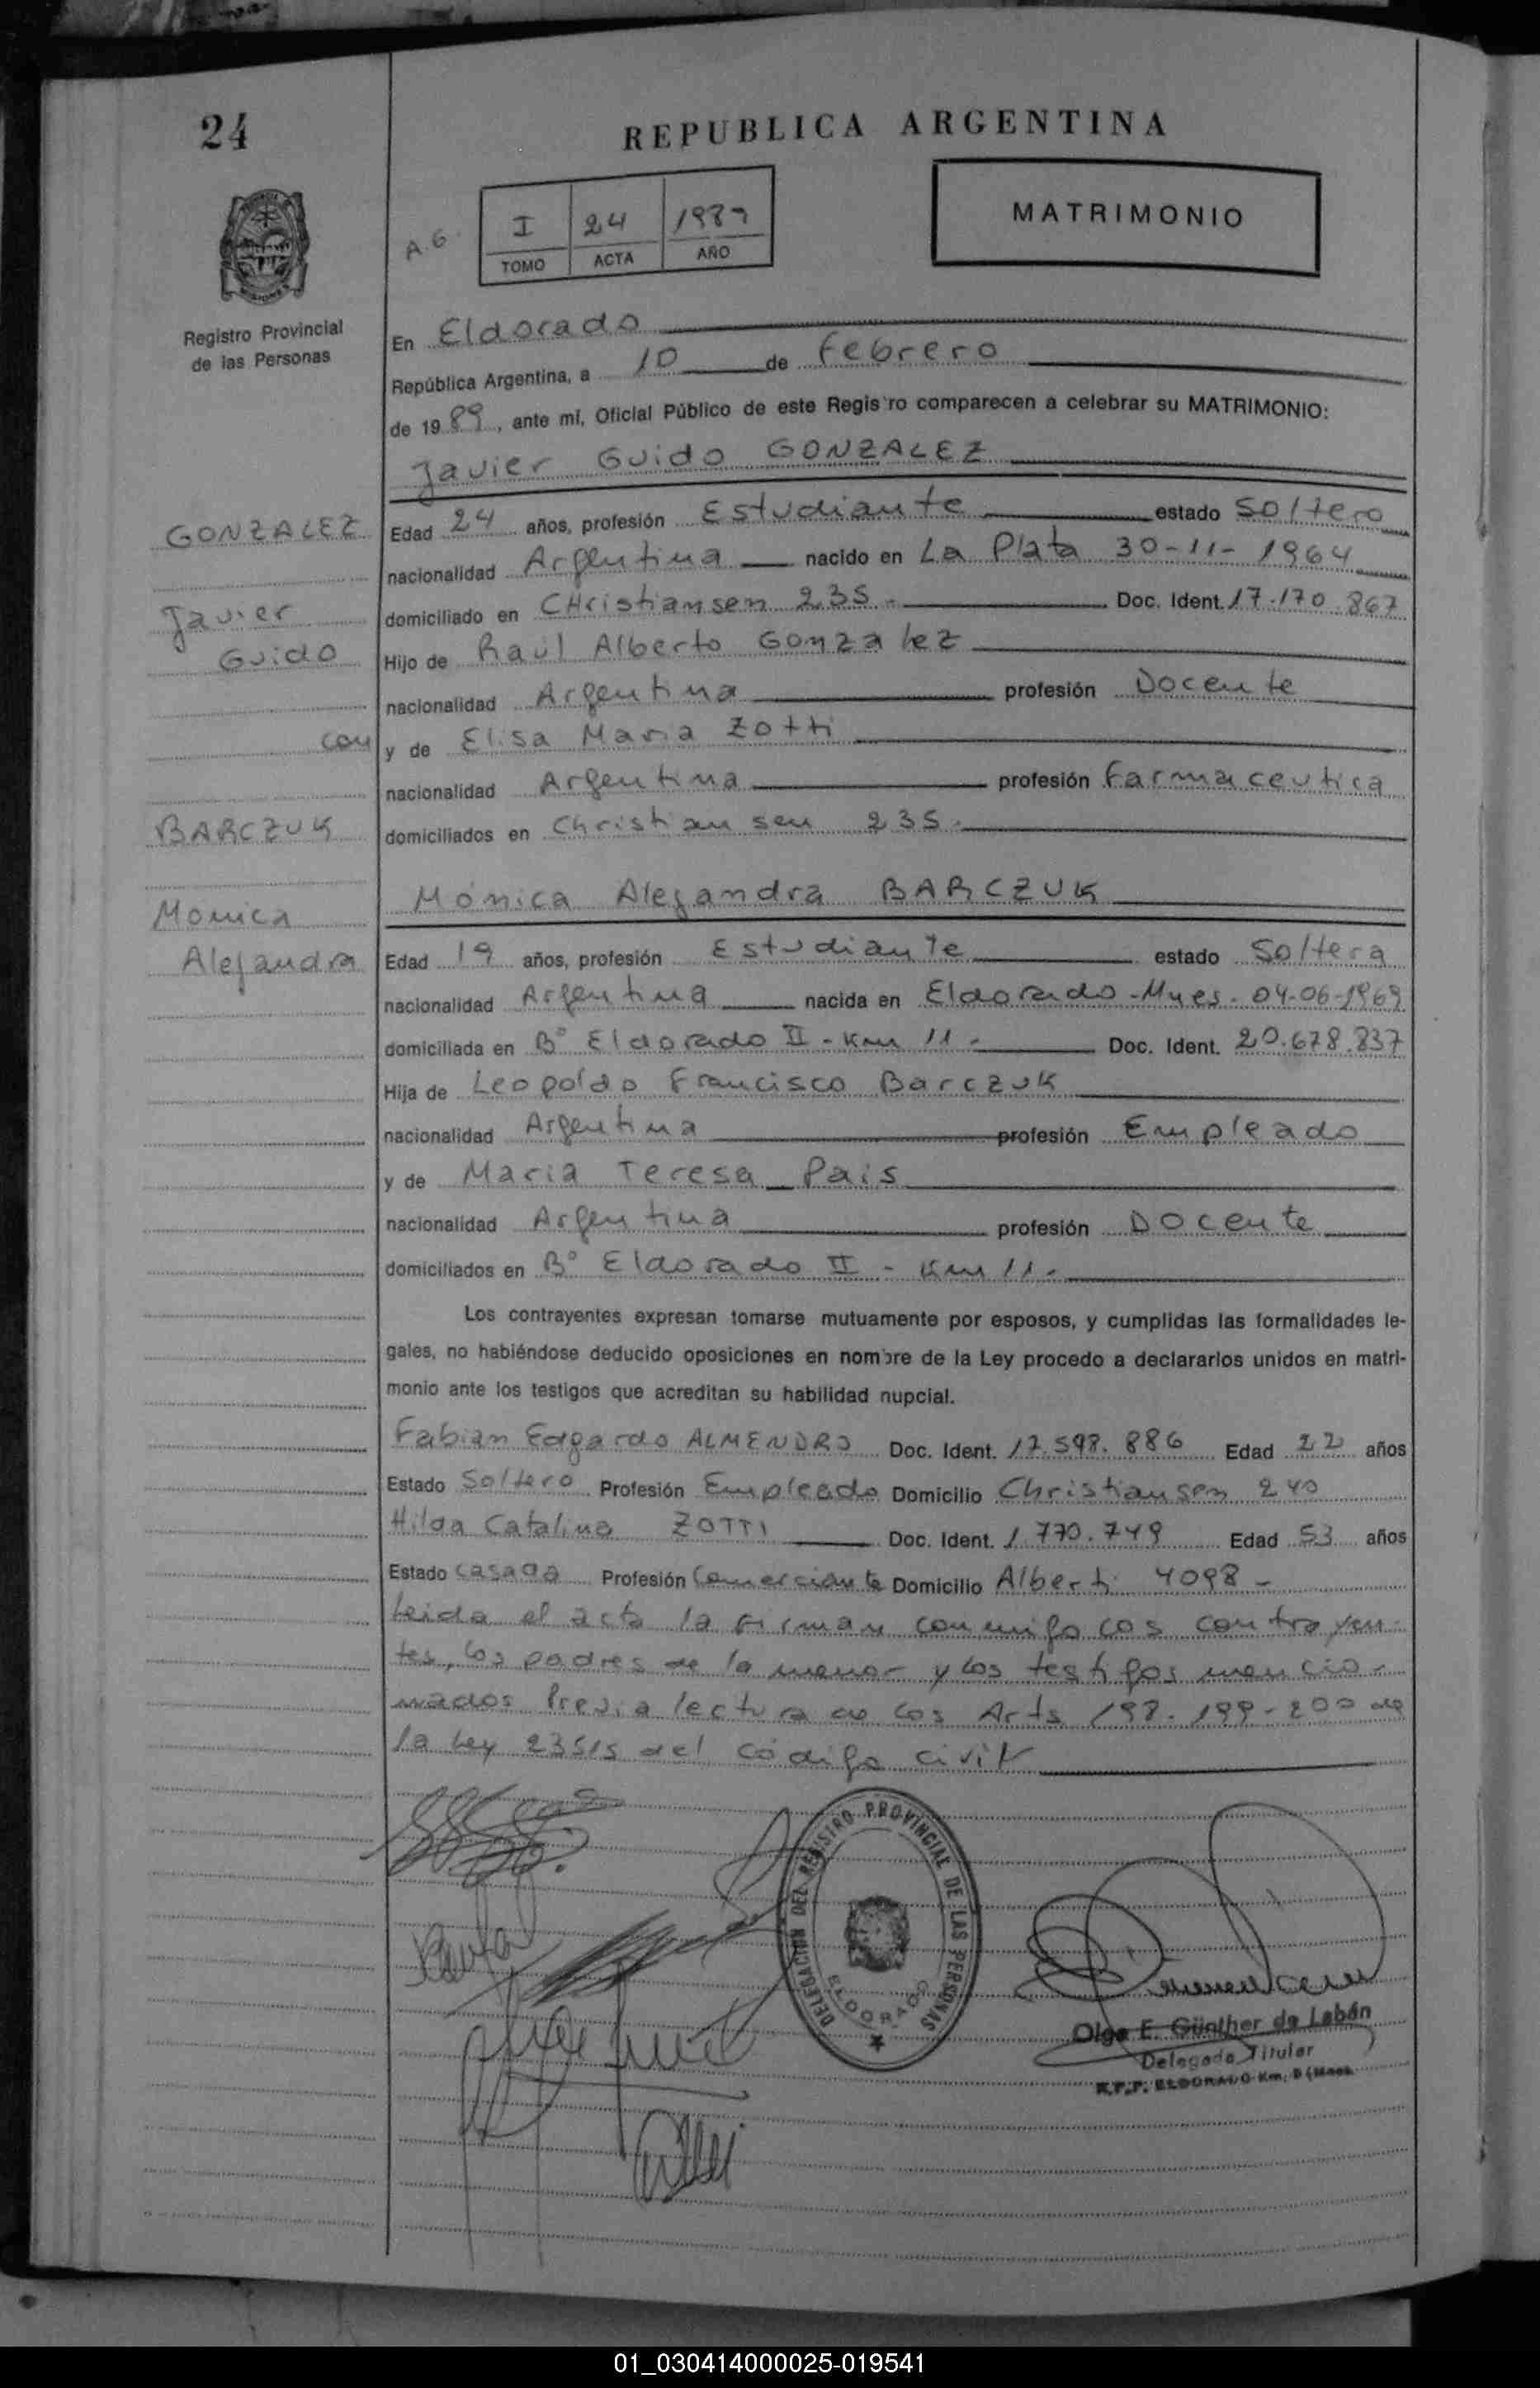 24
REPUBLICA ARGENTINA
A.G.
I 24 1989
TOMO ACTA AÑO
MATRIMONIO
Registro Provincial
de las Personas
En Eldorado
República Argentina, a 10 de Febrero
de 1989, ante mí, Oficial Público de este Registro comparecen a celebrar su MATRIMONIO:
Javier Guido GONZALEZ
GONZALEZ
Javier
Guido
con
BARCZUK
Monica
Alejandra
Edad 24 años, profesión Estudiante estado Soltero
nacionalidad Argentina nacido en La Plata 30-11-1964
domiciliado en CHristiansen 235.- Doc. Ident. 17.170.867
Hijo de Raul Alberto Gonzalez
nacionalidad Argentina profesión Docente
y de Elisa Maria Zotti
nacionalidad Argentina profesión Farmaceutica
domiciliados en Christiansen 235.-
Mónica Alejandra BARCZUK
Edad 19 años, profesión Estudiante estado Soltera
nacionalidad Argentina nacida en Eldorado - Mnes. 04-06-1969
domiciliada en B° Eldorado II - Km 11.- Doc. Ident. 20.678.837
Hija de Leopoldo Francisco Barczuk
nacionalidad Argentina profesión Empleado
y de Maria Teresa Pais
nacionalidad Argentina profesión Docente
domiciliados en B° Eldorado II - Km 11.-
Los contrayentes expresan tomarse mutuamente por esposos, y cumplidas las formalidades le-
gales, no habiéndose deducido oposiciones en nombre de la Ley procedo a declararlos unidos en matri-
monio ante los testigos que acreditan su habilidad nupcial.
Fabian Edgardo ALMENDRO Doc. Ident. 17.598.886 Edad 22 años
Estado Soltero Profesión Empleado Domicilio Christiansen 240
Hilda Catalina ZOTTI Doc. Ident. 1.770.749 Edad 53 años
Estado casada Profesión Comerciante Domicilio Alberti 4098 -
Leida el acta la firman conmigo los contrayen-
tes, los padres de la menor y los testigos mencio-
nados Previa lectura de los Arts 198-199-200 de
la Ley 23515 del código civil
DELEGACION DEL REGISTRO PROVINCIAL DE LAS PERSONAS
ELDORADO
Olga E. Günther de Labán
Delegada Titular
R.P.P. ELDORADO Km. 9 (Mnes.
01_030414000025-019541